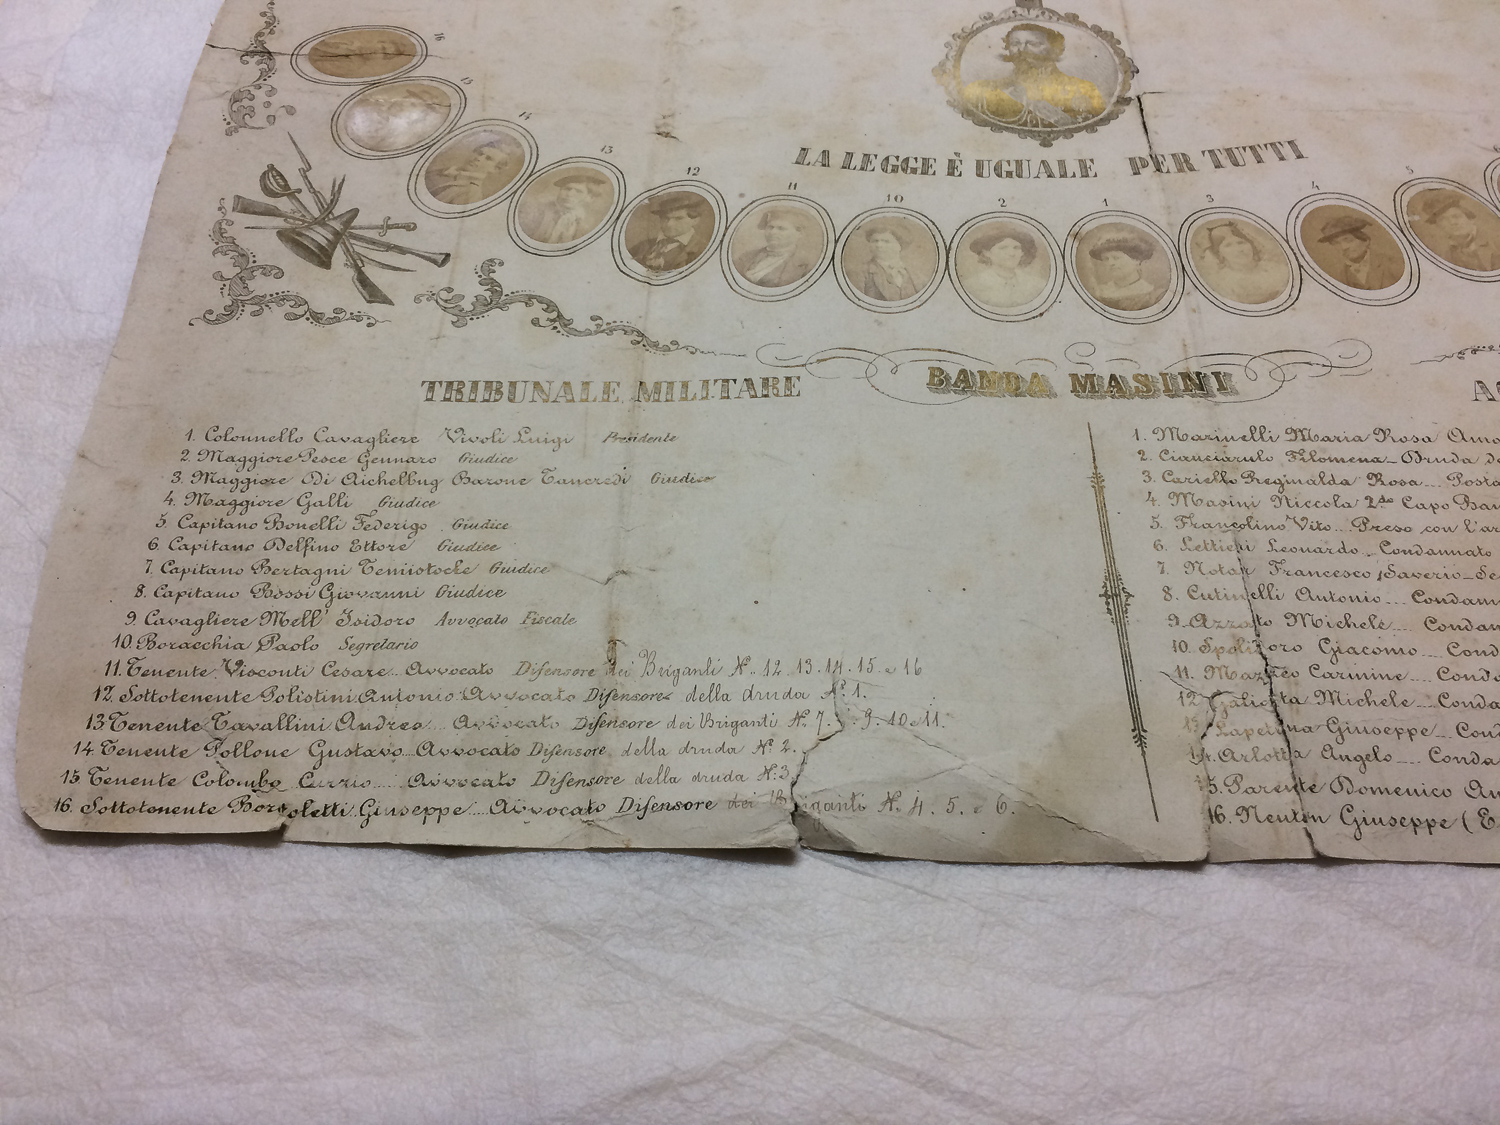 16
15
14
13
12
11
10
2
1
3
4
5
LA LEGGE È UGUALE PER TUTTI
TRIBUNALE MILITARE
1. Colonnello Cavagliere Vivoli Luigi Presidente
2. Maggiore Pesce Gennaro Giudice
3. Maggiore Di Aichelbug Barone Tancredi Giudice
4. Maggiore Galli Giudice
5. Capitano Bonelli Federigo Giudice
6. Capitano Delfino Ettore Giudice
7. Capitano Bertagni Temistocle Giudice
8. Capitano Bossi Giovanni Giudice
9. Cavagliere Mell' Isidoro Avvocato Fiscale
10. Boracchia Paolo Segretario
11. Tenente Visconti Cesare... Avvocato Difensore dei Briganti N. 12. 13. 14. 15. e 16
12. Sottotenente Polistini Antonio Avvocato Difensore della druda N. 1.
13 Tenente Tavallini Andrea.... Avvocato Difensore dei Briganti N. 7. 9. 10. 11.
14. Tenente Pollone Gustavo... Avvocato Difensore della druda N. 2.
15 Tenente Colombo Curzio.... Avvocato Difensore della druda N. 3.
16. Sottotenente Giuseppe.... Avvocato Difensore dei Briganti N. 4. 5. e 6.
BANDA MASINI
1. Marinelli Maria Rosa Amo
2. Cianciarulo Filomena_ Druda de
3. Cariello Reginalda Rosa... Posta
4. Masini Niccola 2do Capo Ban
5. Francolino Vito... Preso con l'ar
6. Lettieri Leonardo... Condannato
7. Notar Francesco Saverio_Se
8. Cutinelli Antonio... Condam
9. Azzato Michele.... Condan
10. Spolidoro Giacomo... Cond
11. Mazzeo Carmine.... Condo
12. Galiotta Michele... Conda
13. Lapetina Giuseppe... Cond
14. Arlotta Angelo... Conda
15. Parente Domenico An
16. Neutin Giuseppe (E